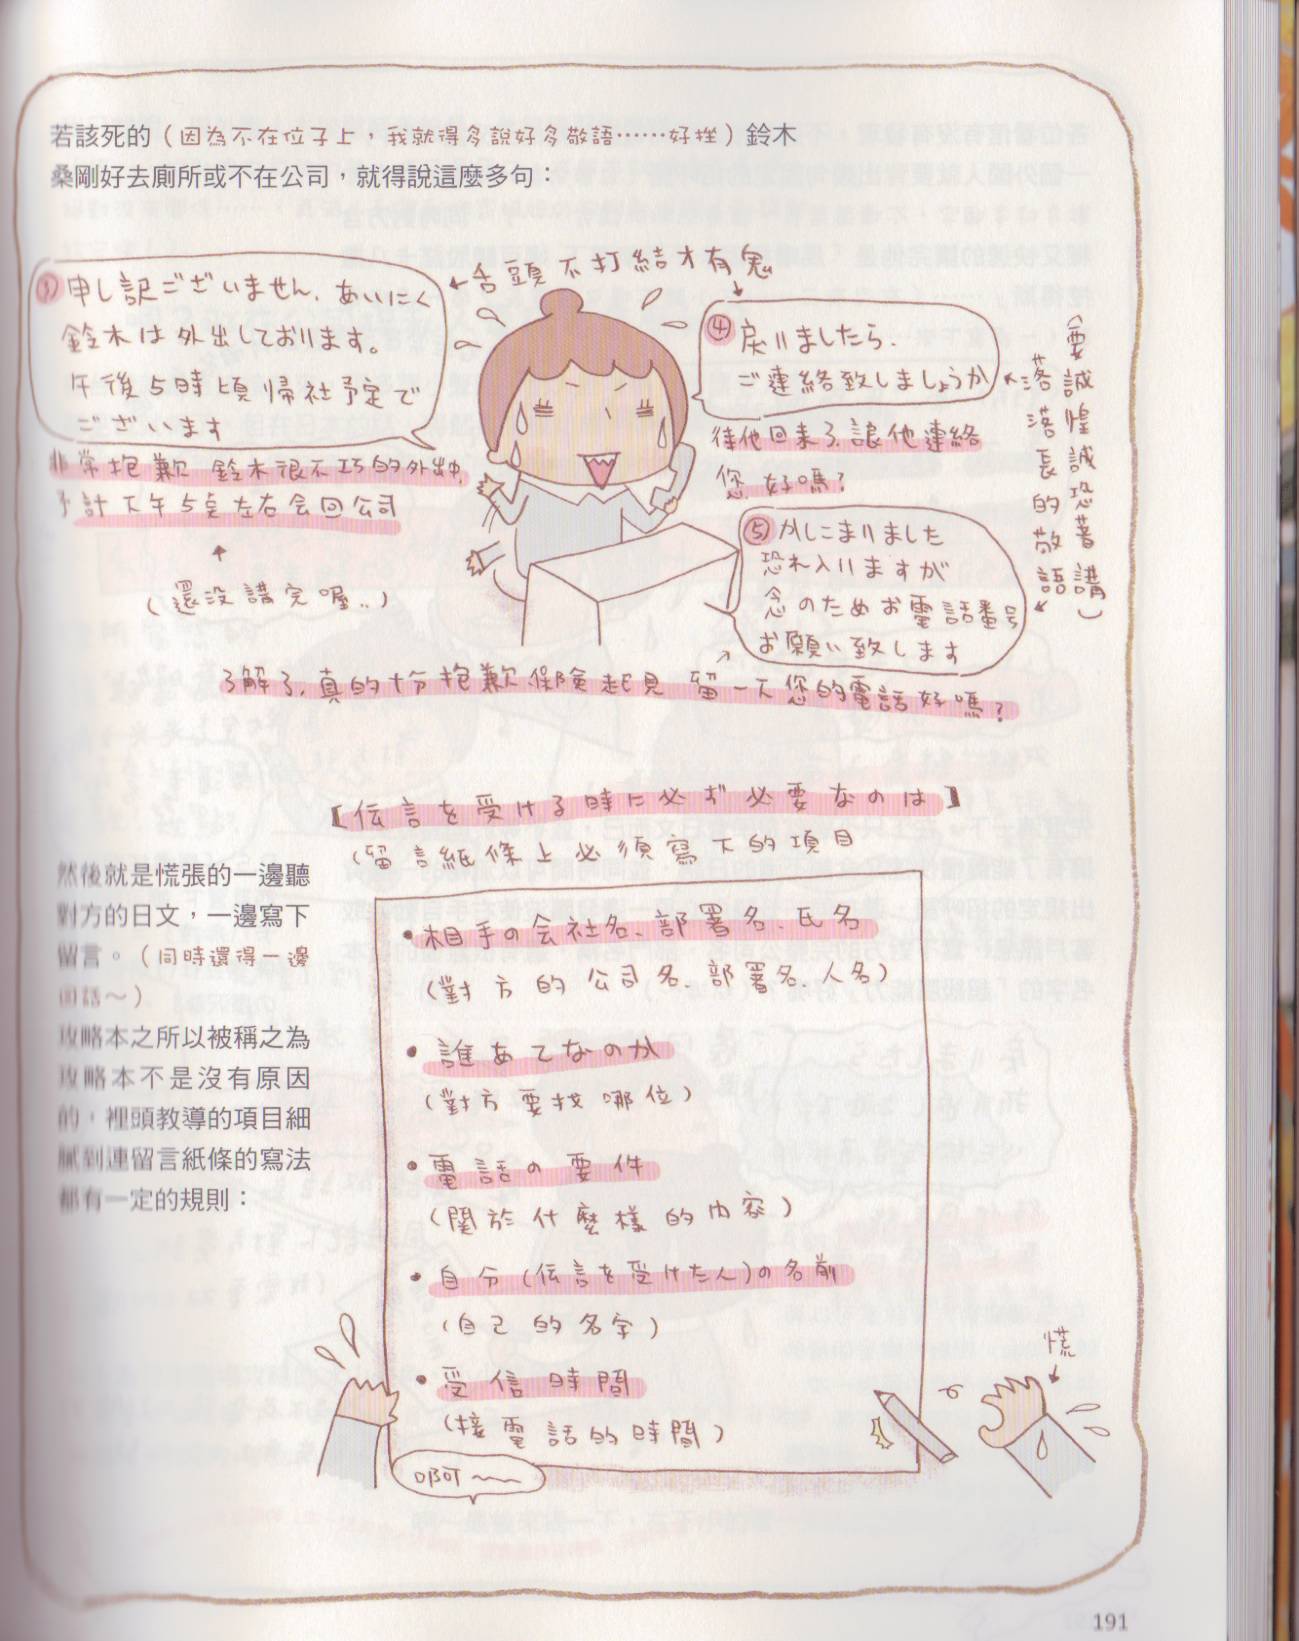 若該死的（因為不在位子上，我就得多說好多敬語……好挫）鈴木
桑剛好去廁所或不在公司，就得說這麼多句：
←舌頭不打結才有鬼
③申し訳ございません、あいにく
鈴木は外出しております。
午後5時頃帰社予定で
ございます
非常抱歉 鈴木很不巧的外出中,
予計下午5点左右会回公司
(還没講完喔..)
④戻りましたら、
ご連絡致しましょうか
待他回来了,讓他連絡
您好嗎?
(要誠惶誠恐著講)
落落長的敬語
⑤かしこまりました
恐れ入りますが
念のためお電話番号
お願い致します
了解了,真的十分抱歉 保險起見 留一下您的電話好嗎?
【伝言を受ける時に必ず必要なのは】
(留言紙條上必須寫下的項目
然後就是慌張的一邊聽
對方的日文，一邊寫下
留言。（同時還得一邊
回話～）
攻略本之所以被稱之為
攻略本不是沒有原因
的，裡頭教導的項目細
膩到連留言紙條的寫法
都有一定的規則：
•相手の会社名、部署名、氏名
(對方的公司名、部署名、人名)
•誰あてなのか
(對方要找哪位)
•電話の要件
(關於什麼樣的内容)
•自分(伝言を受けた人)の名前
(自己的名字)
•受信時間
(接電話的時間)
啊～
慌
191